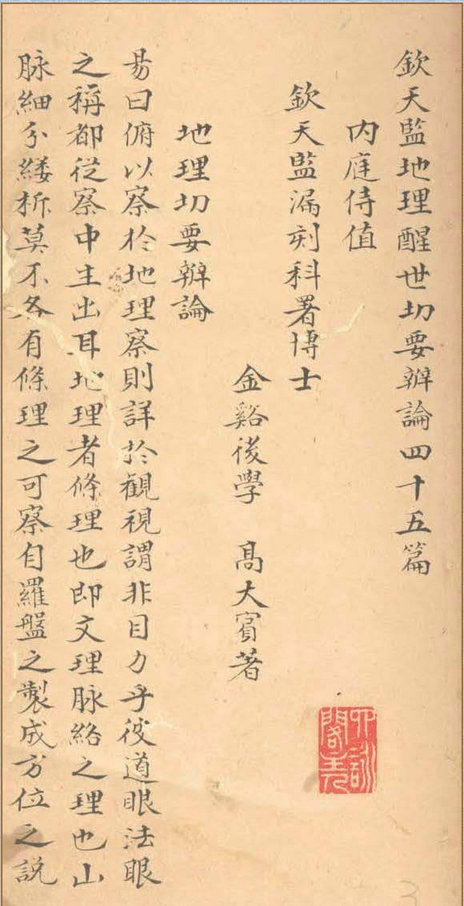 欽天監地理醒世切要辧論四十五篇
内庭侍值
欽天監漏刻科署博士
金谿後學 高大賓著
地理切要辧論
易曰俯以察於地理察則詳於觀視謂非目力乎彼道眼法眼
之稱都従察中主出耳地理者條理也即文理脉絡之理也山
脉細分縷柝莫不各有條理之可察自羅盤之製成方位之説